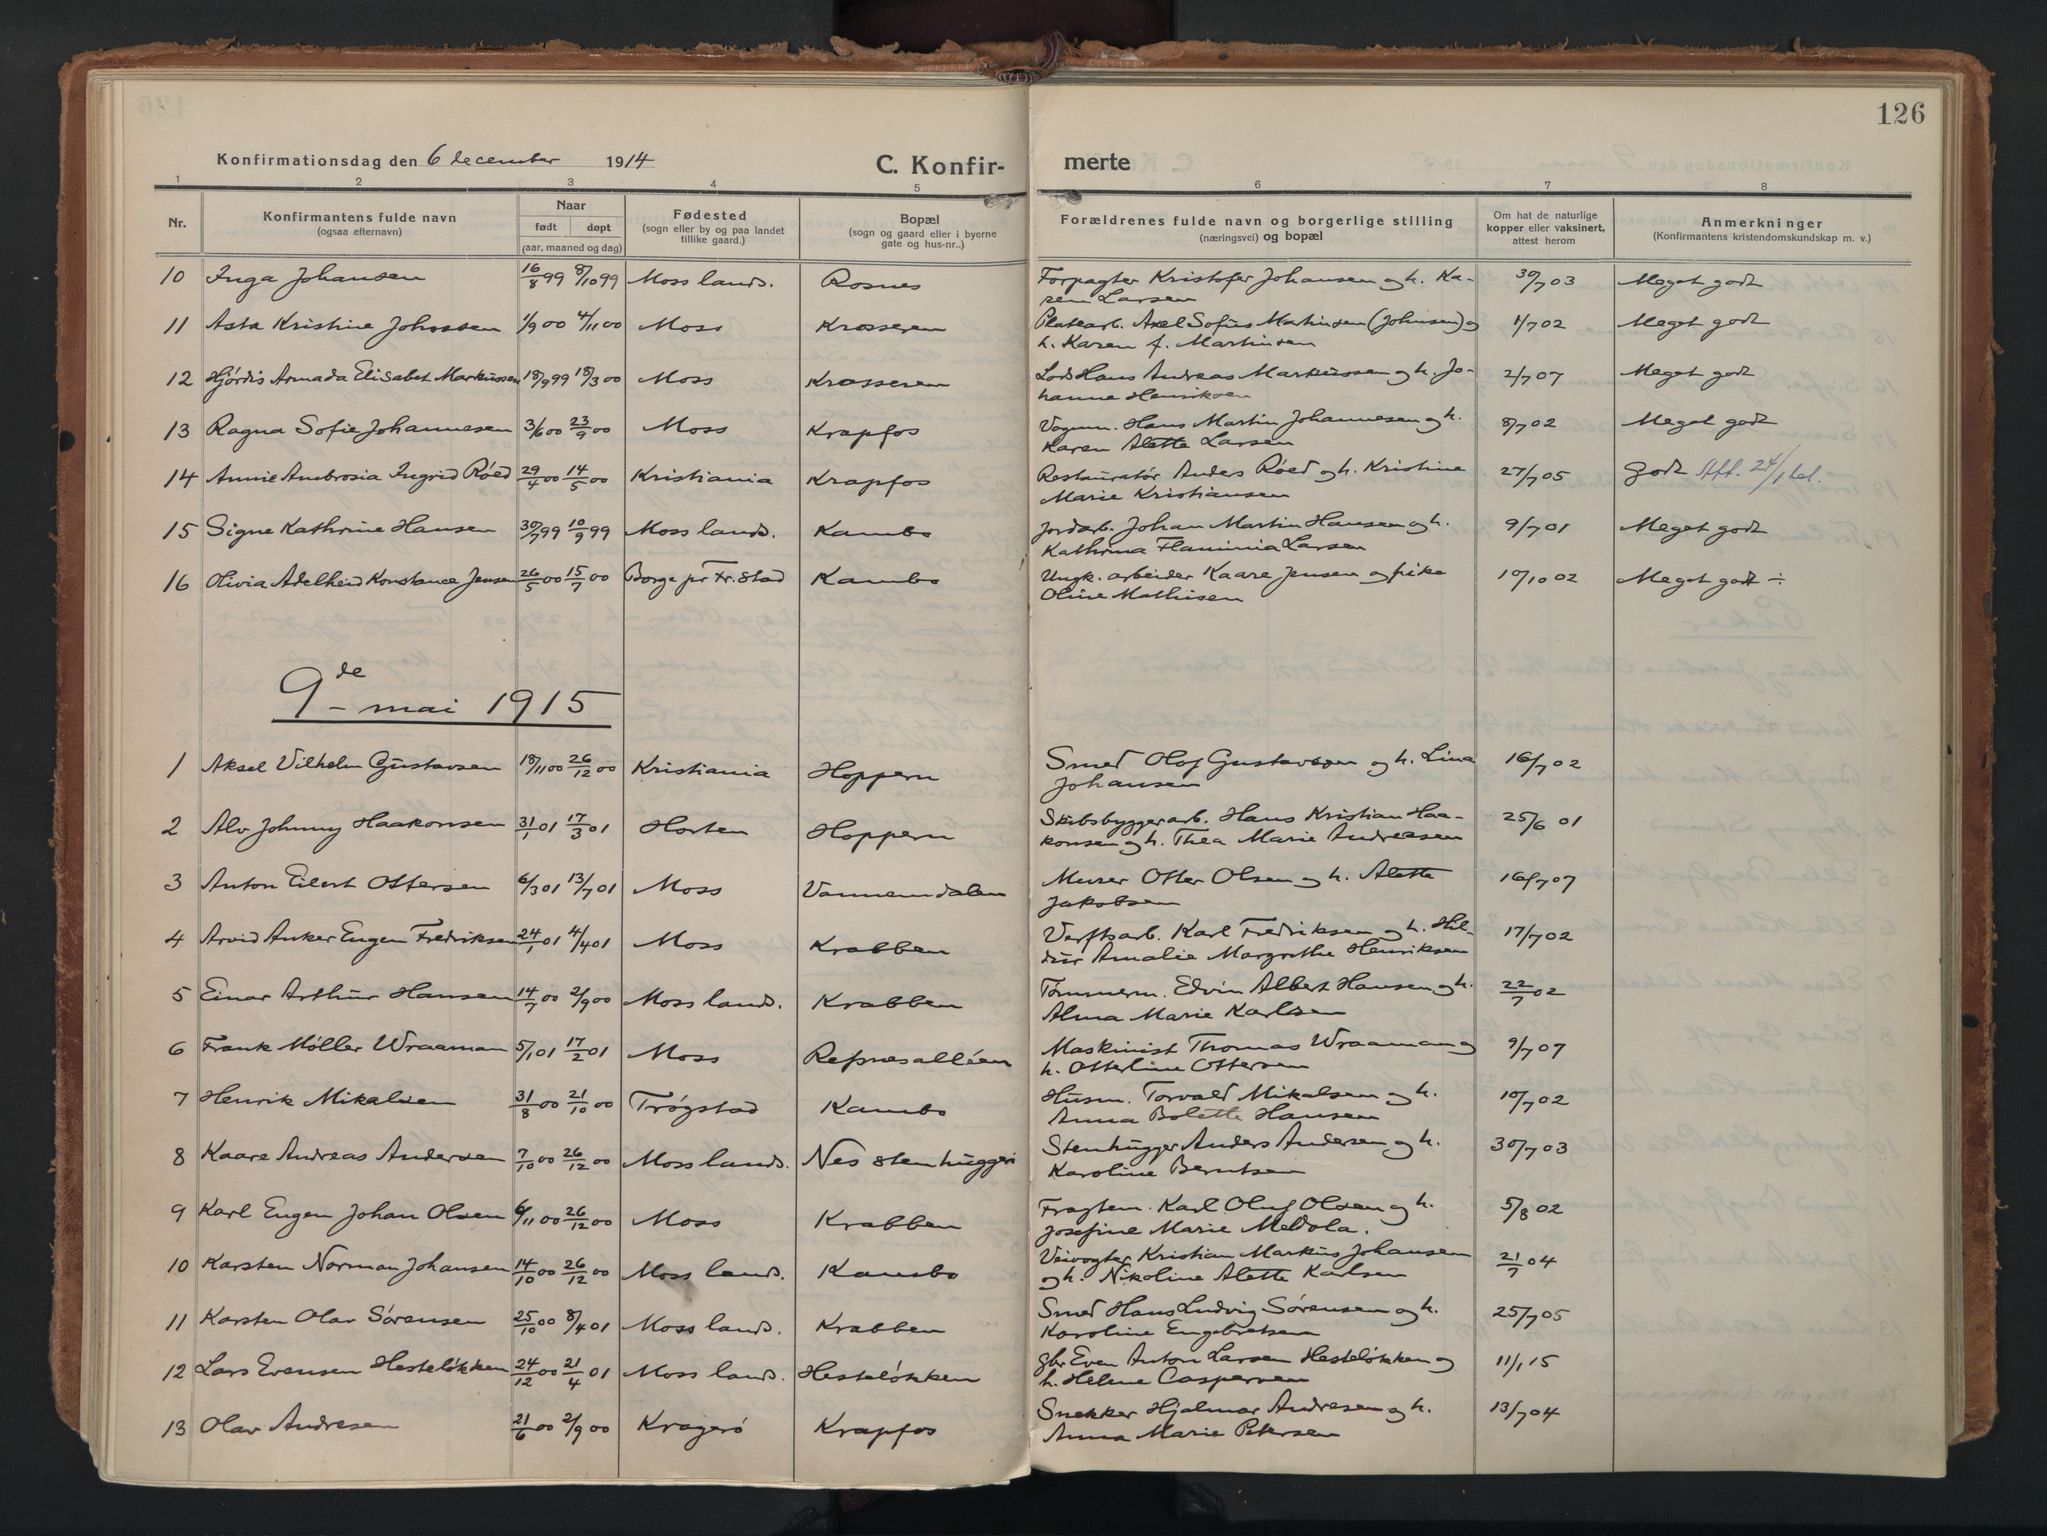 126
Konfirmationsdag den 6 december 1914 C. Konfir- merte
1 2 3 4 5 6 7 8
Nr. Konfirmantens fulde navn (ogsaa efternavn) Naar født døpt (aar, maaned og dag) Fødested (sogn eller by og paa landet tillike gaard.) Bopæl (sogn og gaard eller i byerne gate og hus-nr..) Forældrenes fulde navn og borgerlige stilling (næringsvei) og bopæl Om hat de naturlige kopper eller vaksinert, attest herom Anmerkninger (Konfirmantens kristendomskundskap m. v.)
10 Inga Johansen 16/8 99 8/10 99 Moss lands. Rosnes Forpagter Kristofer Johansen og h. Ka- 30/7 03 Meget godt
ren Larsen
11 Asta Kristine Johnsen 1/9 00 4/11 00 Moss Krosseren Platearb. Axel Sofus Martinsen (Johnsen) og 1/7 02 Meget godt
h. Karen f. Martinsen
12 Hjórdis Armada Elisabet Markussen 18/9 99 18/3 00 Moss Krosseren Lods Hans Andreas Markussen og h. Jo- 2/7 07 Meget godt
hanne Henriksen
13 Ragna Sofie Johannesen 3/6 00 23/9 00 Moss Krapfos Vognm. Hans Martin Johannesen og h. 8/7 02 Meget godt
Karen Alette Larsen
14 Annie Ambrosia Ingrid Róed 29/4 00 14/5 00 Kristiania Krapfos Restauratór Anders Róed og h. Kristine 27/7 05 godt Att. 24/1
Marie Kristiansen
15 Signe Kathrine Hansen 30/7 99 10/9 99 Moss lands. Kambo Jordarb. Johan Martin Hansen og h. 9/7 01 Meget godt
Kathrina Flaminia Larsen
16 Olivia Adelheid Konstance Jensen 26/5 00 15/7 00 Borge pr Fr.stad Kambo Ungk. arbeider Kaare Jensen og pike 10/10 02 Meget godt ÷
Oline Mathisen
9de mai 1915
1 Aksel Vilhelm Gustavsen 18/11 00 26/12 00 Kristiania Hoppern Smed Olof Gustavsson og h. Lina 16/7 02
Johansen
2 Alv Johnny Haakonsen 31/1 01 17/3 01 Horten Hoppern Skibsbyggerarb. Hans Kristian Haa- 25/6 01
konsen og h. Thea Marie Andreasen
3 Anton Eilert Ottersen 6/3 01 13/7 01 Moss Vannemdalen Murer Otter Olsen og h. Alette 16/7 07
Jakobsen
4 Arvid Anker Eugen Fredriksen 24/1 01 4/4 01 Moss Krabben Verftsarb. Karl Fredriksen og h. Hil- 17/7 02
dur Amalie Margrethe Henriksen
5 Einar Arthur Hansen 14/7 00 2/9 00 Moss lands. Krabben Tómmerm. Edvin Albert Hansen og h. 22/7 02
Alma Marie Karlsen
6 Frank Móller Wraaman 5/1 01 17/2 01 Moss Refsnesalléen Maskinist Thomas Wraaman og 9/7 07
h. Otterline Ottersen
7 Henrik Mikalsen 31/8 00 21/10 00 Trógstad Kambo Husm. Torvald Mikalsen og h. 10/7 02
Anna Bolette Hansen
8 Kaare Andreas Andersen 7/10 00 26/12 00 Moss lands. Nes stenhuggeri Stenhugger Anders Andersen og h. 30/7 03
Karoline Berntsen
9 Karl Eugen Johan Olsen 6/11 00 26/12 00 Moss Krabben Fragtem. Karl Oluf Olsen og h. 5/8 02
Josefine Marie Medola.
10 Karsten Norman Johansen 14/10 00 26/12 00 Moss lands. Kambo Veivogter Kristian Markus Johansen 21/7 04
og h. Nikoline Alette Karlsen
11 Karsten Olav Sórensen 25/10 00 8/4 01 Moss lands. Krabben Smed Hans Ludvig Sórensen og h. 25/7 05
Karoline Engebretsen
12 Lars Evensen Hestelókken 24/12 00 21/4 01 Moss lands. Hestelókken gbr Even Anton Larsen Hestelókken og 11/1 15
h. Helene Caspersen
13 Olav Andresen 21/6 00 2/9 00 Krageró Krapfos Snekker Hjalmar Andresen og h. 13/7 04
Anna Marie Petersen